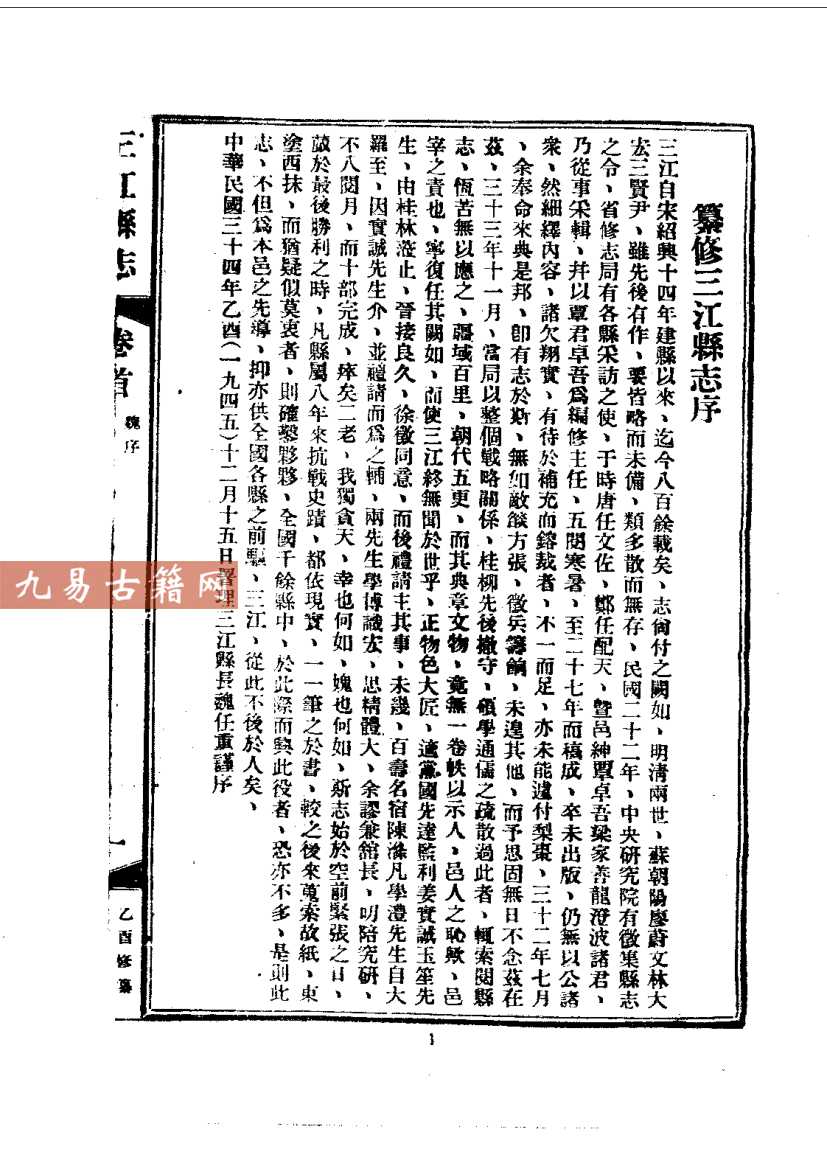 纂修三江縣志序
三江自宋紹興十四年建縣以來、迄今八百餘載矣、志尙付之闕如、明清兩世、蘇朝陽廖蔚文林大
宏三賢尹、雖先後有作、要皆略而未備、類多散而無存、民國二十二年、中央研究院有徵集縣志
之令、省修志局有各縣采訪之使、于時唐任文佐、鄭任配天、曁邑紳覃卓吾梁家善龍澄波諸君、
乃從事采輯、幷以覃君卓吾爲編修主任、五閱寒暑、至二十七年而稿成、卒未出版、仍無以公諸
衆、然細繹內容、諸欠翔實、有待於補充而鎔裁者、不一而足、亦未能遽付梨棗、三十二年七月
、余奉命來典是邦、卽有志於斯、無如敵燄方張、徵兵籌餉、未遑其他、而予思固無日不念茲在
茲、三十三年十一月、當局以整個戰略關係、桂柳先後撤守、碩學通儒之疏散過此者、輒索閱縣
志、恆苦無以應之、疆域百里、朝代五更、而其典章文物、竟無一卷帙以示人、邑人之恥歟、邑
宰之責也、寧復任其闕如、而使三江終無聞於世乎、正物色大匠、適黨國先達監利姜實誠玉笙先
生、由桂林蒞止、晉接良久、徐徵同意、而後禮請主其事、未幾、百壽名宿陳滌凡學澧先生自大
羅至、因實誠先生介、並禮請而爲之輔、兩先生學博識宏、思精體大、余謬兼舘長、叨陪究研、
不八閱月、而十部完成、瘁矣二老、我獨貪天、幸也何如、媿也何如、斯志始於空前緊張之日、
蕆於最後勝利之時、凡縣屬八年來抗戰史蹟、都依現實、一一筆之於書、較之後來蒐索故紙、東
塗西抹、而猶疑似莫衷者、則確鑿夥夥、全國千餘縣中、於此際而興此役者、恐亦不多、是則此
志、不但爲本邑之先導、抑亦供全國各縣之前驅、三江、從此不後於人矣、
中華民國三十四年乙酉(一九四五)十二月十五日署理三江縣長魏任重謹序
三江縣志
卷首
魏序
一
乙酉修纂
九易古籍网
1